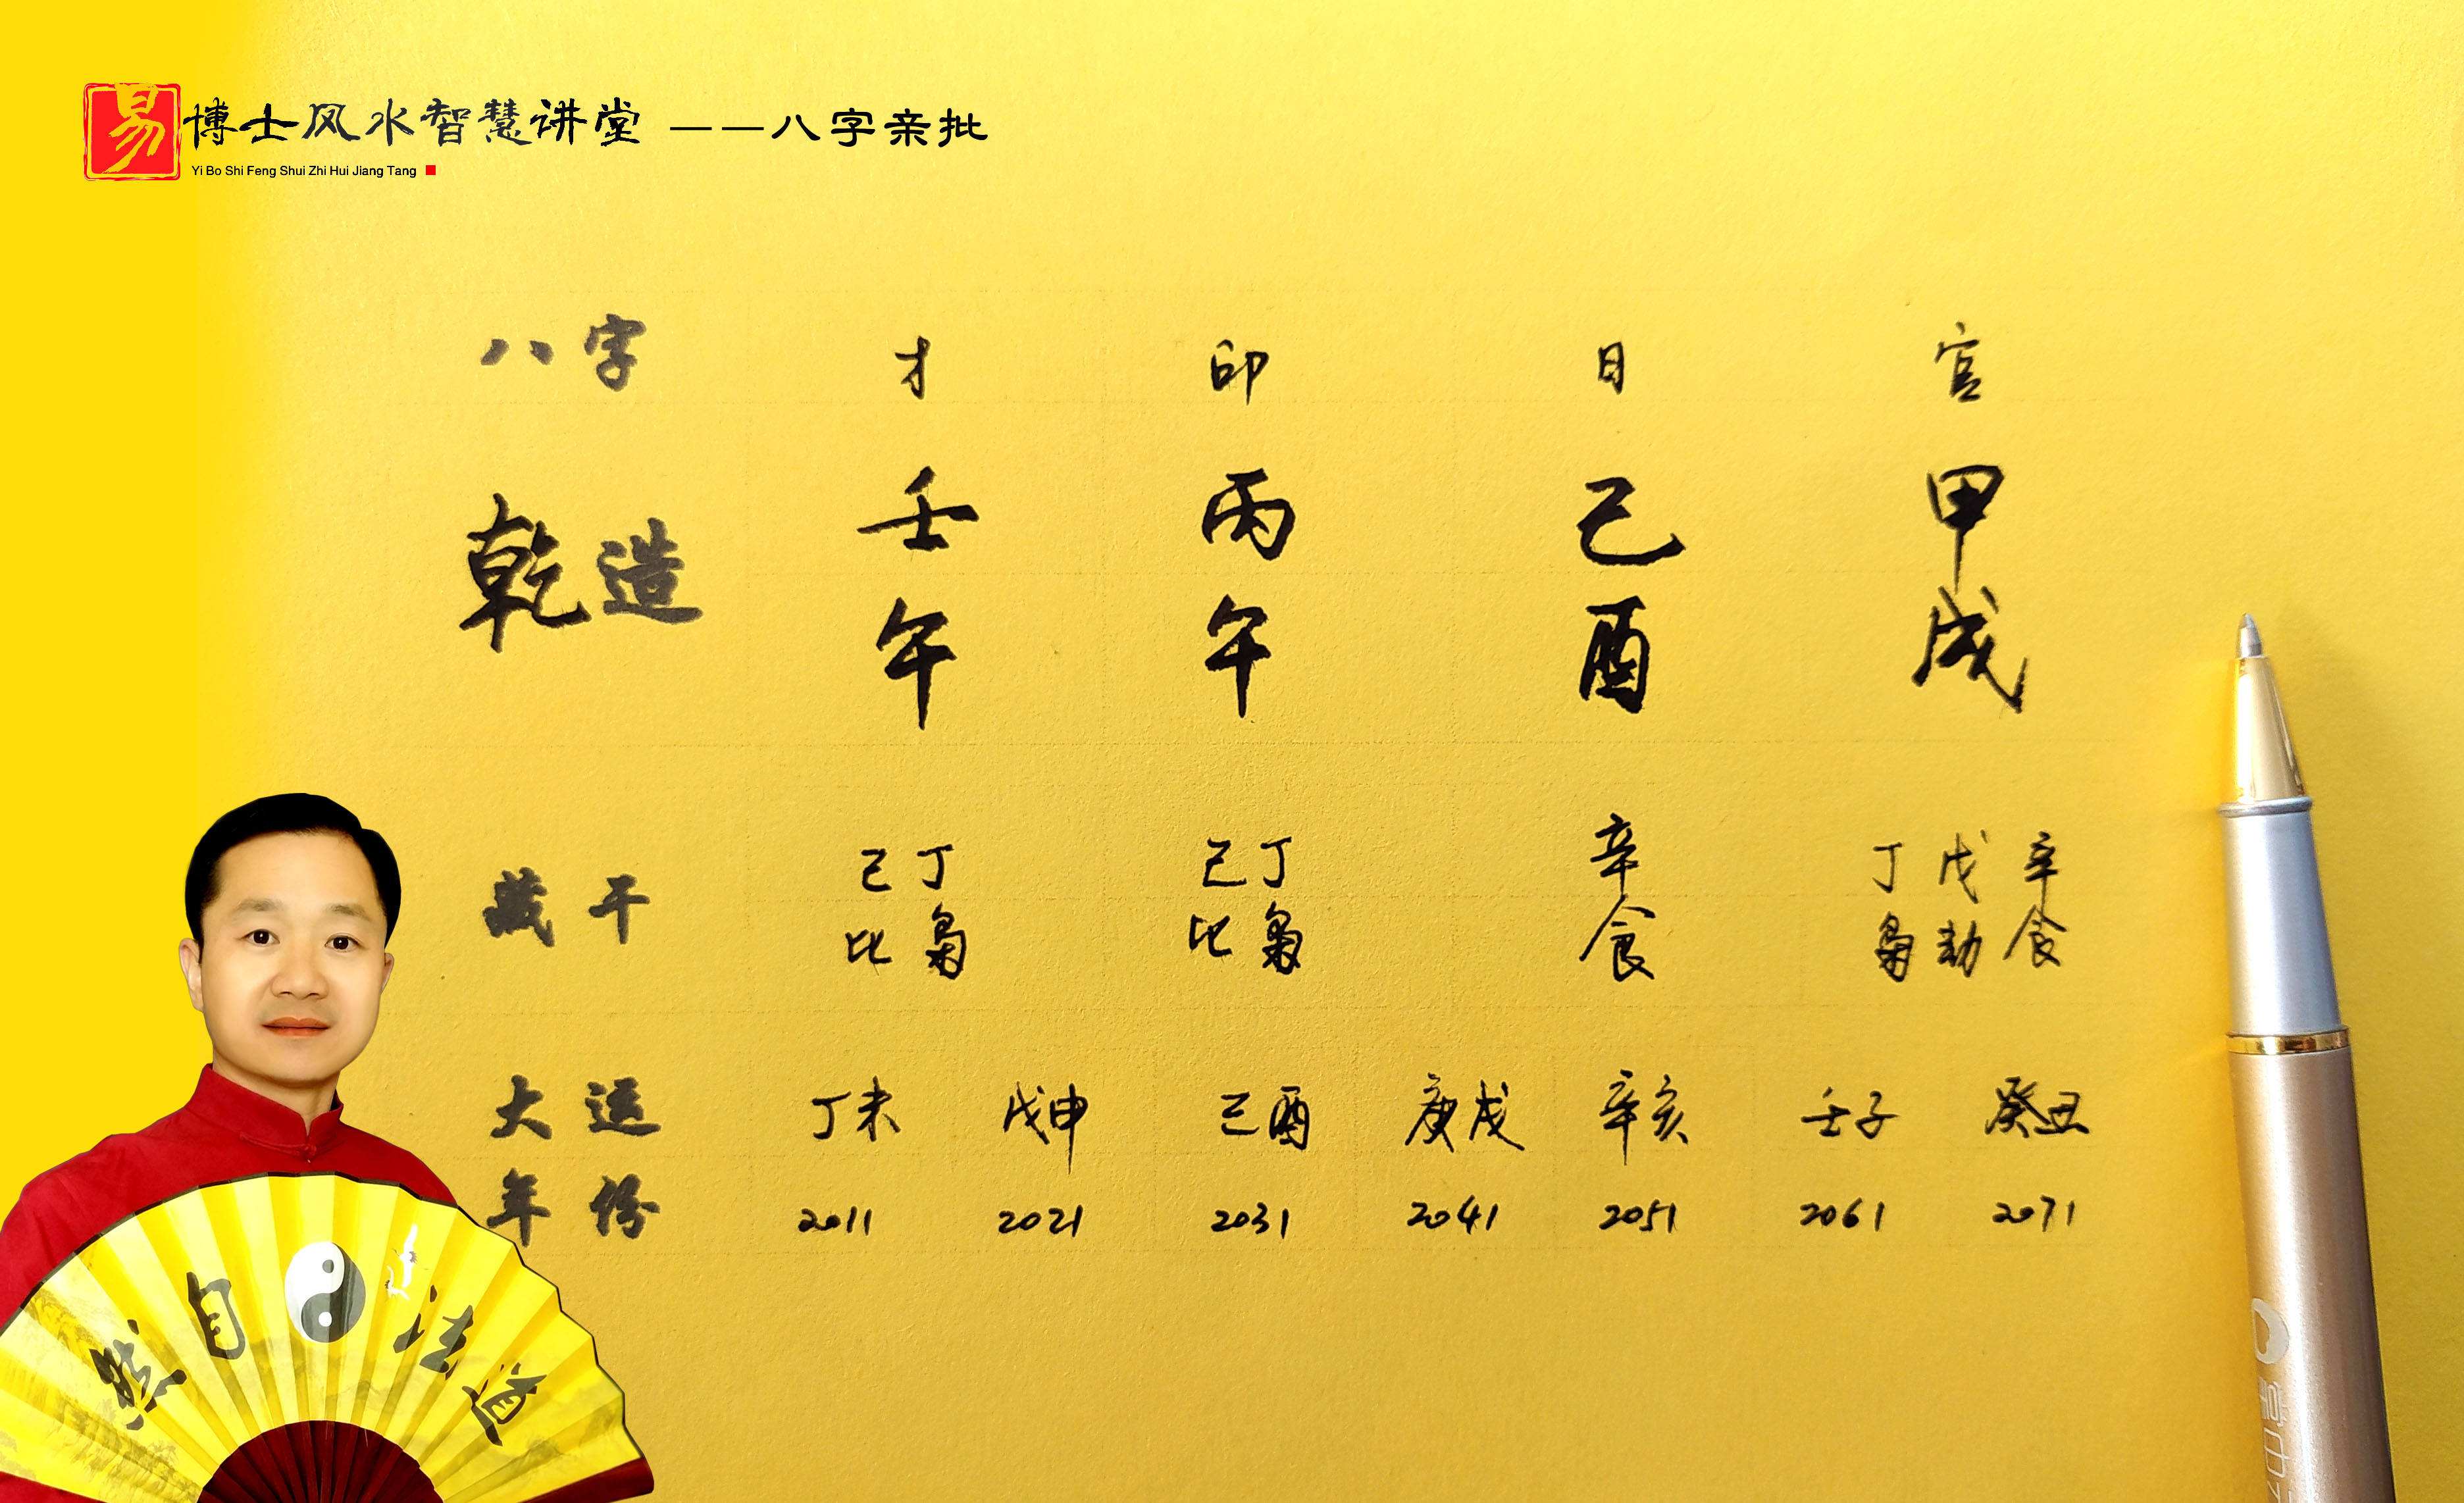 易博士风水智慧讲堂 ——八字亲批
Yi Bo Shi Feng Shui Zhi Hui Jiang Tang
八字 才 印 日 官
乾造 壬午 丙午 己酉 甲戌
藏干 己丁 己丁 辛 丁戊辛
比枭 比枭 食 枭劫食
大运 丁未 戊申 己酉 庚戌 辛亥 壬子 癸丑
年份 2011 2021 2031 2041 2051 2061 2071
道法自然